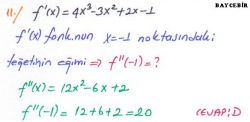 BAYCEBİR
11-) f'(x)=4x³-3x²+2x-1
f'(x) fonk.nun x=-1 noktasındaki
teğetinin eğimi => f''(-1)=?
f''(x)=12x²-6x+2
f''(-1)=12+6+2=20 CEVAP:D